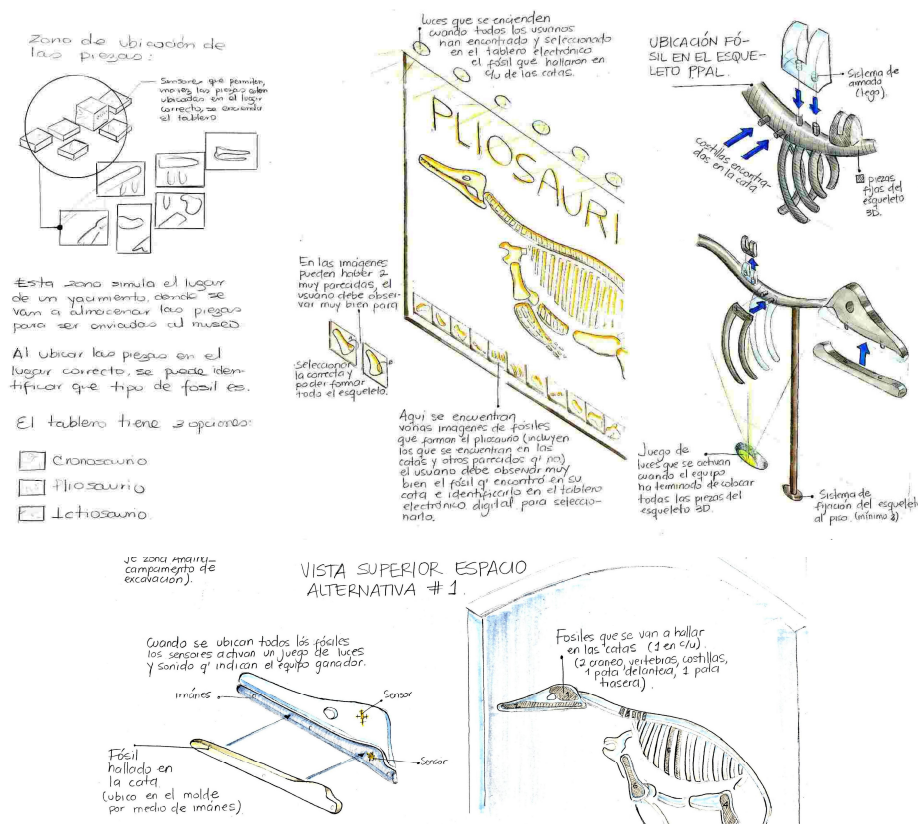 Zona de ubicación de
las piezas:
Sensores que permiten,
una vez las piezas estén
ubicadas en el lugar
correcto, se encienda
el tablero
Esta zona simula el lugar
de un yacimiento, donde se
van a almacenar las piezas
para ser enviadas al museo
Al ubicar las piezas en el
lugar correcto, se puede iden-
tificar que tipo de fosil es.
El tablero tiene 3 opciones:
Cronosaurio
Pliosaurio
Ictiosaurio
Luces que se encienden
cuando todos los usuarios
han encontrado y seleccionado
en el tablero electrónico
el fósil que hallaron en
c/u de las catas.
PLIOSAURI
En las imágenes
pueden haber 2
muy parecidas, el
usuario debe obser-
var muy bien para
seleccionar
la correcta y
poder formar
todo el esqueleto.
Aquí se encuentran
varias imágenes de fósiles
que forman el pliosaurio (incluyen
los que se encuentran en las
catas y otros parecidos q' no)
el usuario debe observar muy
bien el fósil q' encontró en su
cata e identificarlo en el tablero
electrónico digital para seleccio-
narlo.
UBICACIÓN FÓ-
SIL EN EL ESQUE-
LETO PPAL.
Sistema de
armado
(lego).
costillas encontra-
das en la cata
piezas
fijas del
esqueleto
3D.
Juego de
luces que se activan
cuando el equipo
ha terminado de colocar
todas las piezas del
esqueleto 3D.
Sistema de
fijación del esqueleto
al piso. (mínimo 2)
campamento de
excavación).
VISTA SUPERIOR ESPACIO
ALTERNATIVA #1.
Cuando se ubican todos los fósiles
los sensores activan un juego de luces
y sonido q' indican el equipo ganador.
imánes
Sensor
Sensor
Fósil
hallado en
la cata
(ubico en el molde
por medio de imánes)
Fosiles que se van a hallar
en las catas (1 en c/u)
(2 craneo, vertebras, costillas,
1 pata delantera, 1 pata
trasera)